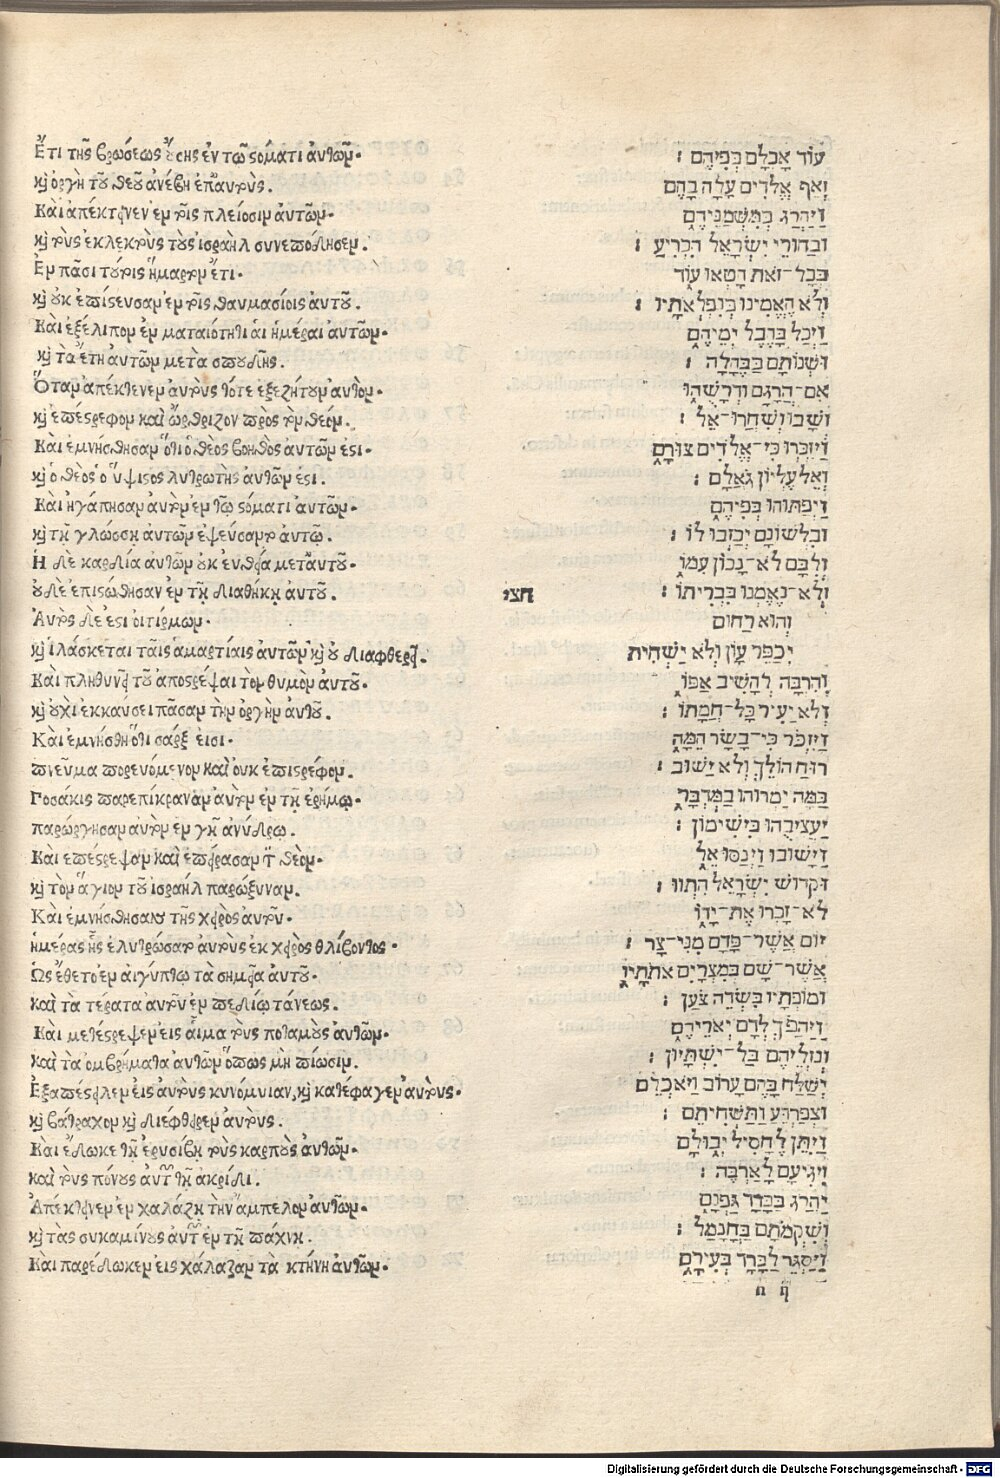 Ἔτι τῆς βρώσεως ὄυσης ἐν τῶ στόματι ἀυτῶν.
καὶ ὀργὴ τοῦ θεοῦ ἀνέβη ἐπ' ἀυτοὺς.
Καὶ ἀπέκτεινεν ἐν τοῖς πλείοσιν ἀυτῶν.
καὶ τοὺς ἐκλεκτοὺς τοῦ ισραὴλ συνεπόδησεν.
Ἐν πᾶσι τούτοις ἥμαρτον ἔτι.
καὶ ὀυκ ἐπίστευσαν ἐν τοῖς θαυμασίοις ἀυτοῦ.
Καὶ ἐξέλιπον ἐν ματαιότητι ἁι ἡμέραι ἀυτῶν.
καὶ τὰ ἔτη ἀυτῶν μετὰ σπουδῆς.
Ὅταν ἀπέκτενεν ἀυτοὺς τότε ἐξεζήτουν ἀυτὸν.
καὶ ἐπέστρεφον καὶ ὤρθριζον πρὸς τὸν θεόν.
Καὶ ἐμνήσθησαν ὅτι ὁ θεὸς βοηθὸς ἀυτῶν ἐστι.
καὶ ὁ θεὸς ὁ ὕψιστος λυτρωτὴς ἀυτῶν ἐστι.
Καὶ ἠγάπησαν ἀυτὸν ἐν τῶ στόματι ἀυτῶν.
καὶ τῆ γλώσση ἀυτῶν ἐψέυσαντο ἀυτῶ.
Η δὲ καρδία ἀυτῶν ὀυκ ἐυθεῖα μετ' ἀυτοῦ.
ὀυδὲ ἐπιστώθησαν ἐν τῆ διαθήκη ἀυτοῦ.
Ἀυτὸς δέ ἐστι ὀικτίρμων.
καὶ ἱλάσκεται ταῖς ἁμαρτίαις ἀυτῶν καὶ ὀυ διαφθερεῖ.
Καὶ πληθυνεῖ τοῦ ἀποστρέψαι τὸν θυμὸν ἀυτοῦ.
καὶ ὀυχὶ ἐκκαυσει πᾶσαν τὴν ὀργὴν ἀυτοῦ.
Καὶ ἐμνήσθη ὅτι σὰρξ ἐισι.
πνεῦμα πορευόμενον καὶ ὀυκ ἐπιστρέφον.
Ποσάκις παρεπίκραναν ἀυτὸν ἐν τῆ ἐρήμω.
παρώργησαν ἀυτὸν ἐν γῆ ἀνύδρω.
Καὶ ἐπέστρεψαν καὶ ἐπείρασαν τὸν θεὸν.
καὶ τὸν ἅγιον τοῦ ισραὴλ παρώξυναν.
Καὶ ὀυκ ἐμνήσθησαν τῆς χειρὸς ἀυτοῦ.
ἡμέρας ἧς ἐλυτρώσατο ἀυτοὺς ἐκ χειρὸς θλίβοντος.
Ὡς ἔθετο ἐν ἀιγύπτω τὰ σημεῖα ἀυτοῦ.
καὶ τὰ τέρατα ἀυτοῦ ἐν πεδίω τάνεως.
Καὶ μετέστρεψεν ἐις ἇιμα τοὺς ποταμοὺς ἀυτῶν.
καὶ τὰ ὀμβρήματα ἀυτῶν ὅπως μὴ πίωσιν.
Ἐξαπέστειλεν ἐις ἀυτοὺς κυνόμυιαν, καὶ κατέφαγεν ἀυτοὺς.
καὶ βάτραχον καὶ διέφθειρεν ἀυτοὺς.
Καὶ ἔδωκε τῆ ἐρυσίβη τοὺς καρποὺς ἀυτῶν.
καὶ τοὺς πόνους ἀυτῶν τῆ ἀκρίδι.
Ἀπέκτεινεν ἐν χαλάζη τὴν ἄμπελον ἀυτῶν.
καὶ τὰς συκαμίνους ἀυτῶν ἐν τῆ πάχνη.
Καὶ παρέδωκεν ἐις χάλαζαν τὰ κτήνη ἀυτῶν.
עוֹד אָכְלָם בְּפִיהֶם :
וְאַף אֱלֹדִים עָלָה בָהֶם
וַיַּהֲרֹג בְּמִשְׁמַנֵּיהֶם
וּבַחוּרֵי יִשְׂרָאֵל הִכְרִיעַ :
בְּכָל־זֹאת חָטְאוּ עוֹד
וְלֹא הֶאֱמִינוּ בְּנִפְלְאֹתָיו :
וַיְכַל בַּהֶבֶל יְמֵיהֶם
וּשְׁנוֹתָם בַּבֶּהָלָה :
אִם־הֲרָגָם וּדְרָשׁוּהוּ
וְשָׁבוּ וְשִׁחֲרוּ־אֵל :
וַיִּזְכְּרוּ כִּי־אֱלֹדִים צוּרָם
וְאֵל עֶלְיוֹן גֹּאֲלָם :
וַיְפַתּוּהוּ בְּפִיהֶם
וּבִלְשׁוֹנָם יְכַזְּבוּ לוֹ :
וְלִבָּם לֹא־נָכוֹן עִמּוֹ
וְלֹא־נֶאֶמְנוּ בִּבְרִיתוֹ :
חצי
וְהוּא רַחוּם
יְכַפֵּר עָוֹן וְלֹא יַשְׁחִית
וְהִרְבָּה לְהָשִׁיב אַפּוֹ
וְלֹא יָעִיר כָּל־חֲמָתוֹ :
וַיִּזְכֹּר כִּי־בָשָׂר הֵמָּה
רוּחַ הוֹלֵךְ וְלֹא יָשׁוּב :
כַּמָּה יַמְרוּהוּ בַמִּדְבָּר
יַעֲצִיבוּהוּ בִּישִׁימוֹן :
וַיָּשׁוּבוּ וַיְנַסּוּ אֵל
וּקְדוֹשׁ יִשְׂרָאֵל הִתְווּ :
לֹא־זָכְרוּ אֶת־יָדוֹ
יוֹם אֲשֶׁר־פָּדָם מִנִּי־צָר :
אֲשֶׁר־שָׂם בְּמִצְרַיִם אֹתֹתָיו
וּמוֹפְתָיו בִּשְׂדֵה צֹעַן :
וַיַּהֲפֹךְ לְדָם יְאֹרֵיהֶם
וְנוֹזְלֵיהֶם בַּל־יִשְׁתָּיוּן :
יְשַׁלַּח בָּהֶם עָרוֹב וַיֹּאכְלֵם
וּצְפַרְדֵּעַ וַתַּשְׁחִיתֵם :
וַיִּתֵּן לֶחָסִיל יְבוּלָם
וִיגִיעָם לָאַרְבֶּה :
יַהֲרֹג בַּבָּרָד גַּפְנָם
וְשִׁקְמֹתָם בַּחֲנָמַל :
וַיַּסְגֵּר לַבָּרָד בְּעִירָם
Digitalisierung gefördert durch die Deutsche Forschungsgemeinschaft - DFG